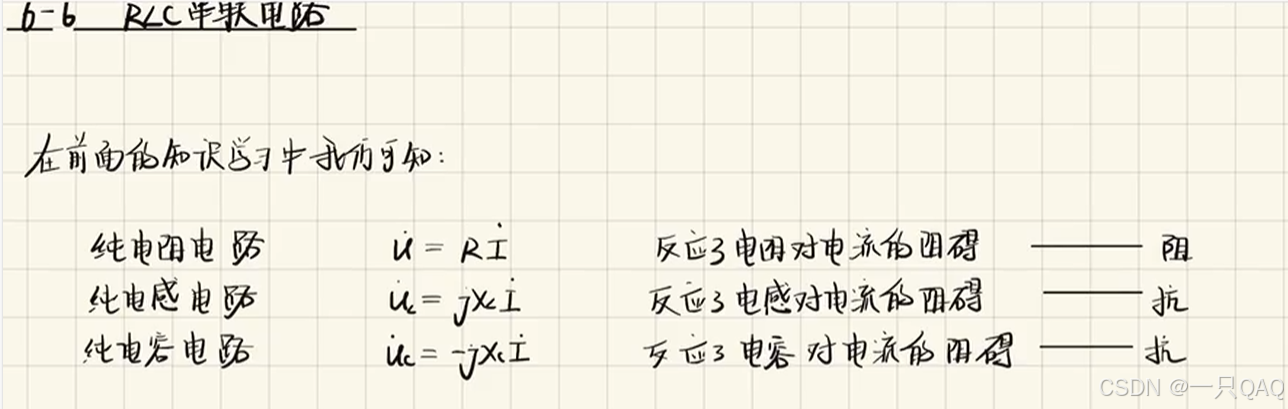 6-6 RLC串联电路
在前面的知识学习中我们可知：
纯电阻电路 U̇ = Rİ 反应了电阻对电流的阻碍 —— 阻
纯电感电路 U̇L = jXLİ 反应了电感对电流的阻碍 —— 抗
纯电容电路 U̇c = -jXcİ 反应了电容对电流的阻碍 —— 抗
CSDN @一只QAQ